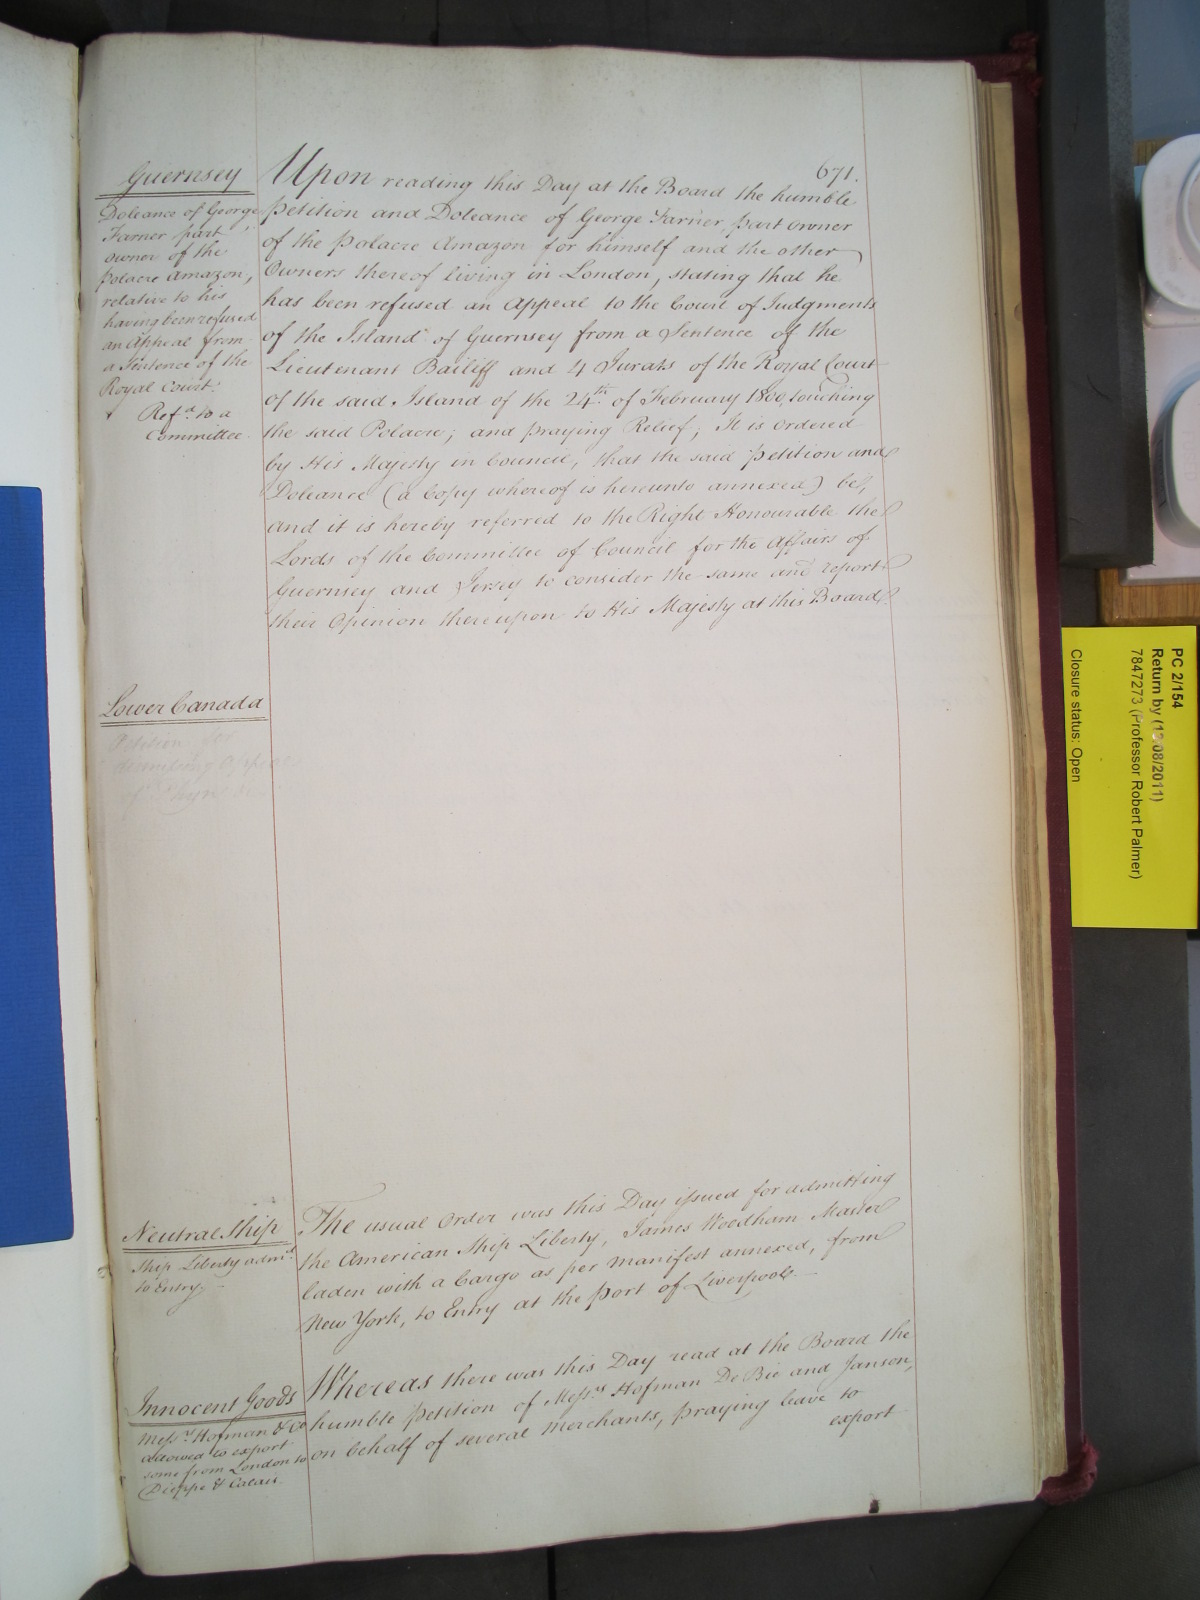 671.
Guernsey
Doleance of George
Farner part
owner of the
Polacre Amazon,
relative to his
having been refused
an Appeal from
a Sentence of the
Royal Court.
Refd. to a
Committee.
Upon reading this Day at the Board the humble
Petition and Doleance of George Farner, part owner
of the Polacre Amazon for himself and the other
Owners thereof living in London, stating that he
has been refused an Appeal to the Court of Judgments
of the Island of Guernsey from a Sentence of the
Lieutenant Bailiff and 4 Jurats of the Royal Court
of the said Island of the 24th. of February 1800, touching
the said Polacre; and praying Relief; It is ordered
by His Majesty in Council, that the said Petition and
Doleance (a Copy whereof is hereunto annexed) be,
and it is hereby referred to the Right Honourable the
Lords of the Committee of Council for the Affairs of
Guernsey and Jersey to consider the same and report
their Opinion thereupon to His Majesty at this Board.
Lower Canada
Petition for
of Phyn &c
Neutral Ship
Ship Liberty admd.
to Entry.
The usual Order was this Day issued for admitting
the American Ship Liberty, James Weedham Master
laden with a Cargo as per manifest annexed, from
New York, to Entry at the Port of Liverpool.
Innocent Goods
Messrs. Hofman & Co
allowed to export
some from London to
Dieppe & Calais.
Whereas there was this Day read at the Board the
humble Petition of Messrs. Hofman De Bie and Janson,
on behalf of several Merchants, praying leave to
export
PC 2/154
Return by (12/08/2011)
7847273 (Professor Robert Palmer)
Closure status: Open